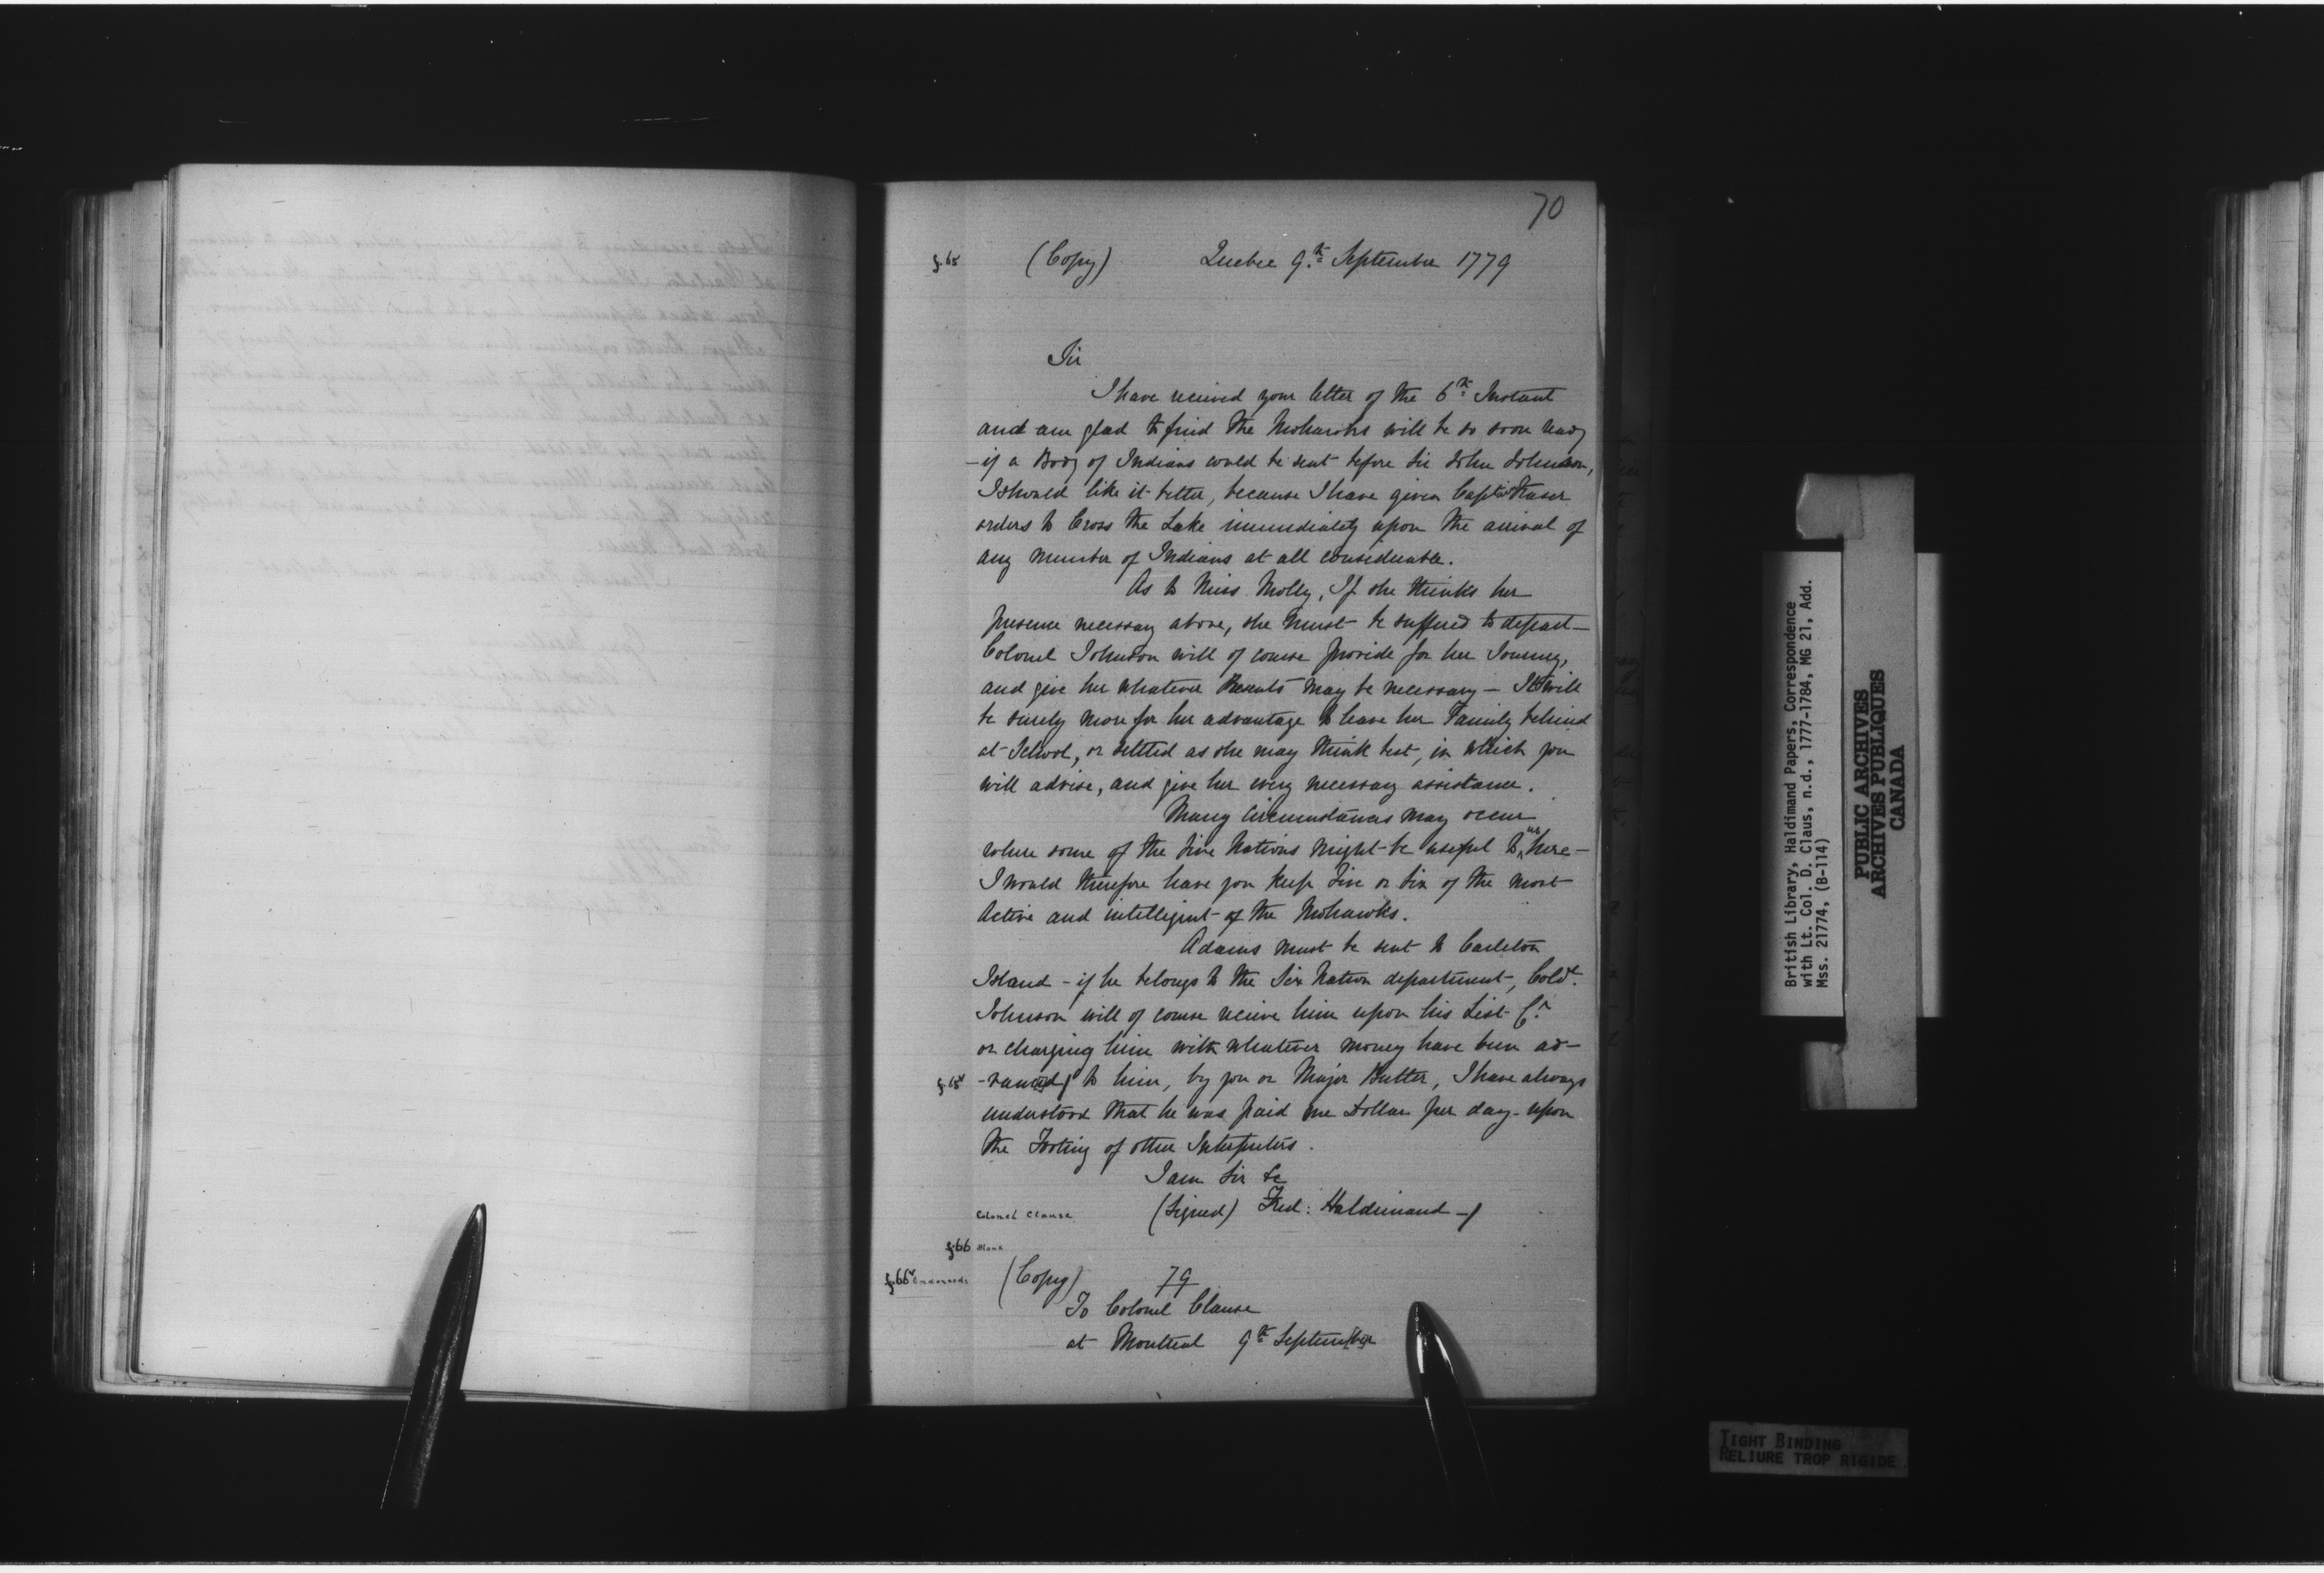 70
f. 65 (Copy) Quebec 9.th September 1779
Sir
I have received your letter of the 6.th Instant
and am glad to find the Mohawks will be so soon ready
- if a Body of Indians could be sent before Sir John Johnson,
I should like it better, because I have given Capt. Fraser
orders to Cross the Lake immediately upon the arrival of
any number of Indians at all considerable.
As to Miss Molly, If she thinks her
presence necessary above, she must be suffered to depart -
Colonel Johnson will of course provide for her Journey,
and give her whatever Presents may be necessary - It will
be surely more for her advantage to leave her Family behind
at School, or settled as she may think best, in which you
will advise, and give her every necessary assistance.
Many Circumstances may occur
where some of the Five Nations might be useful to us here -
I would therefore have you keep Five or Six of the most
Active and intelligent of the Mohawks.
Adams must be sent to Carleton
Island - if he belongs to the Six Nation department, Col.
Johnson will of course receive him upon his List
or charging him with whatever money have been ad-
f. 65v -vanced to him, by you or Major Butler, I have always
understood that he was paid one Dollar per day - upon
the Footing of other Interpreters.
I am Sir &c
Colonel Clause (Signed) Fred: Haldimand -/
f. 66 Blank
f. 66v Endorsed: (Copy) 79
To Colonel Clause
at Montreal 9th September
British Library, Haldimand Papers, Correspondence
with Lt. Col. D. Claus, n.d., 1777-1784, MG 21, Add.
Mss. 21774, (B-114)
PUBLIC ARCHIVES
ARCHIVES PUBLIQUES
CANADA
TIGHT BINDING
RELIURE TROP RIGIDE